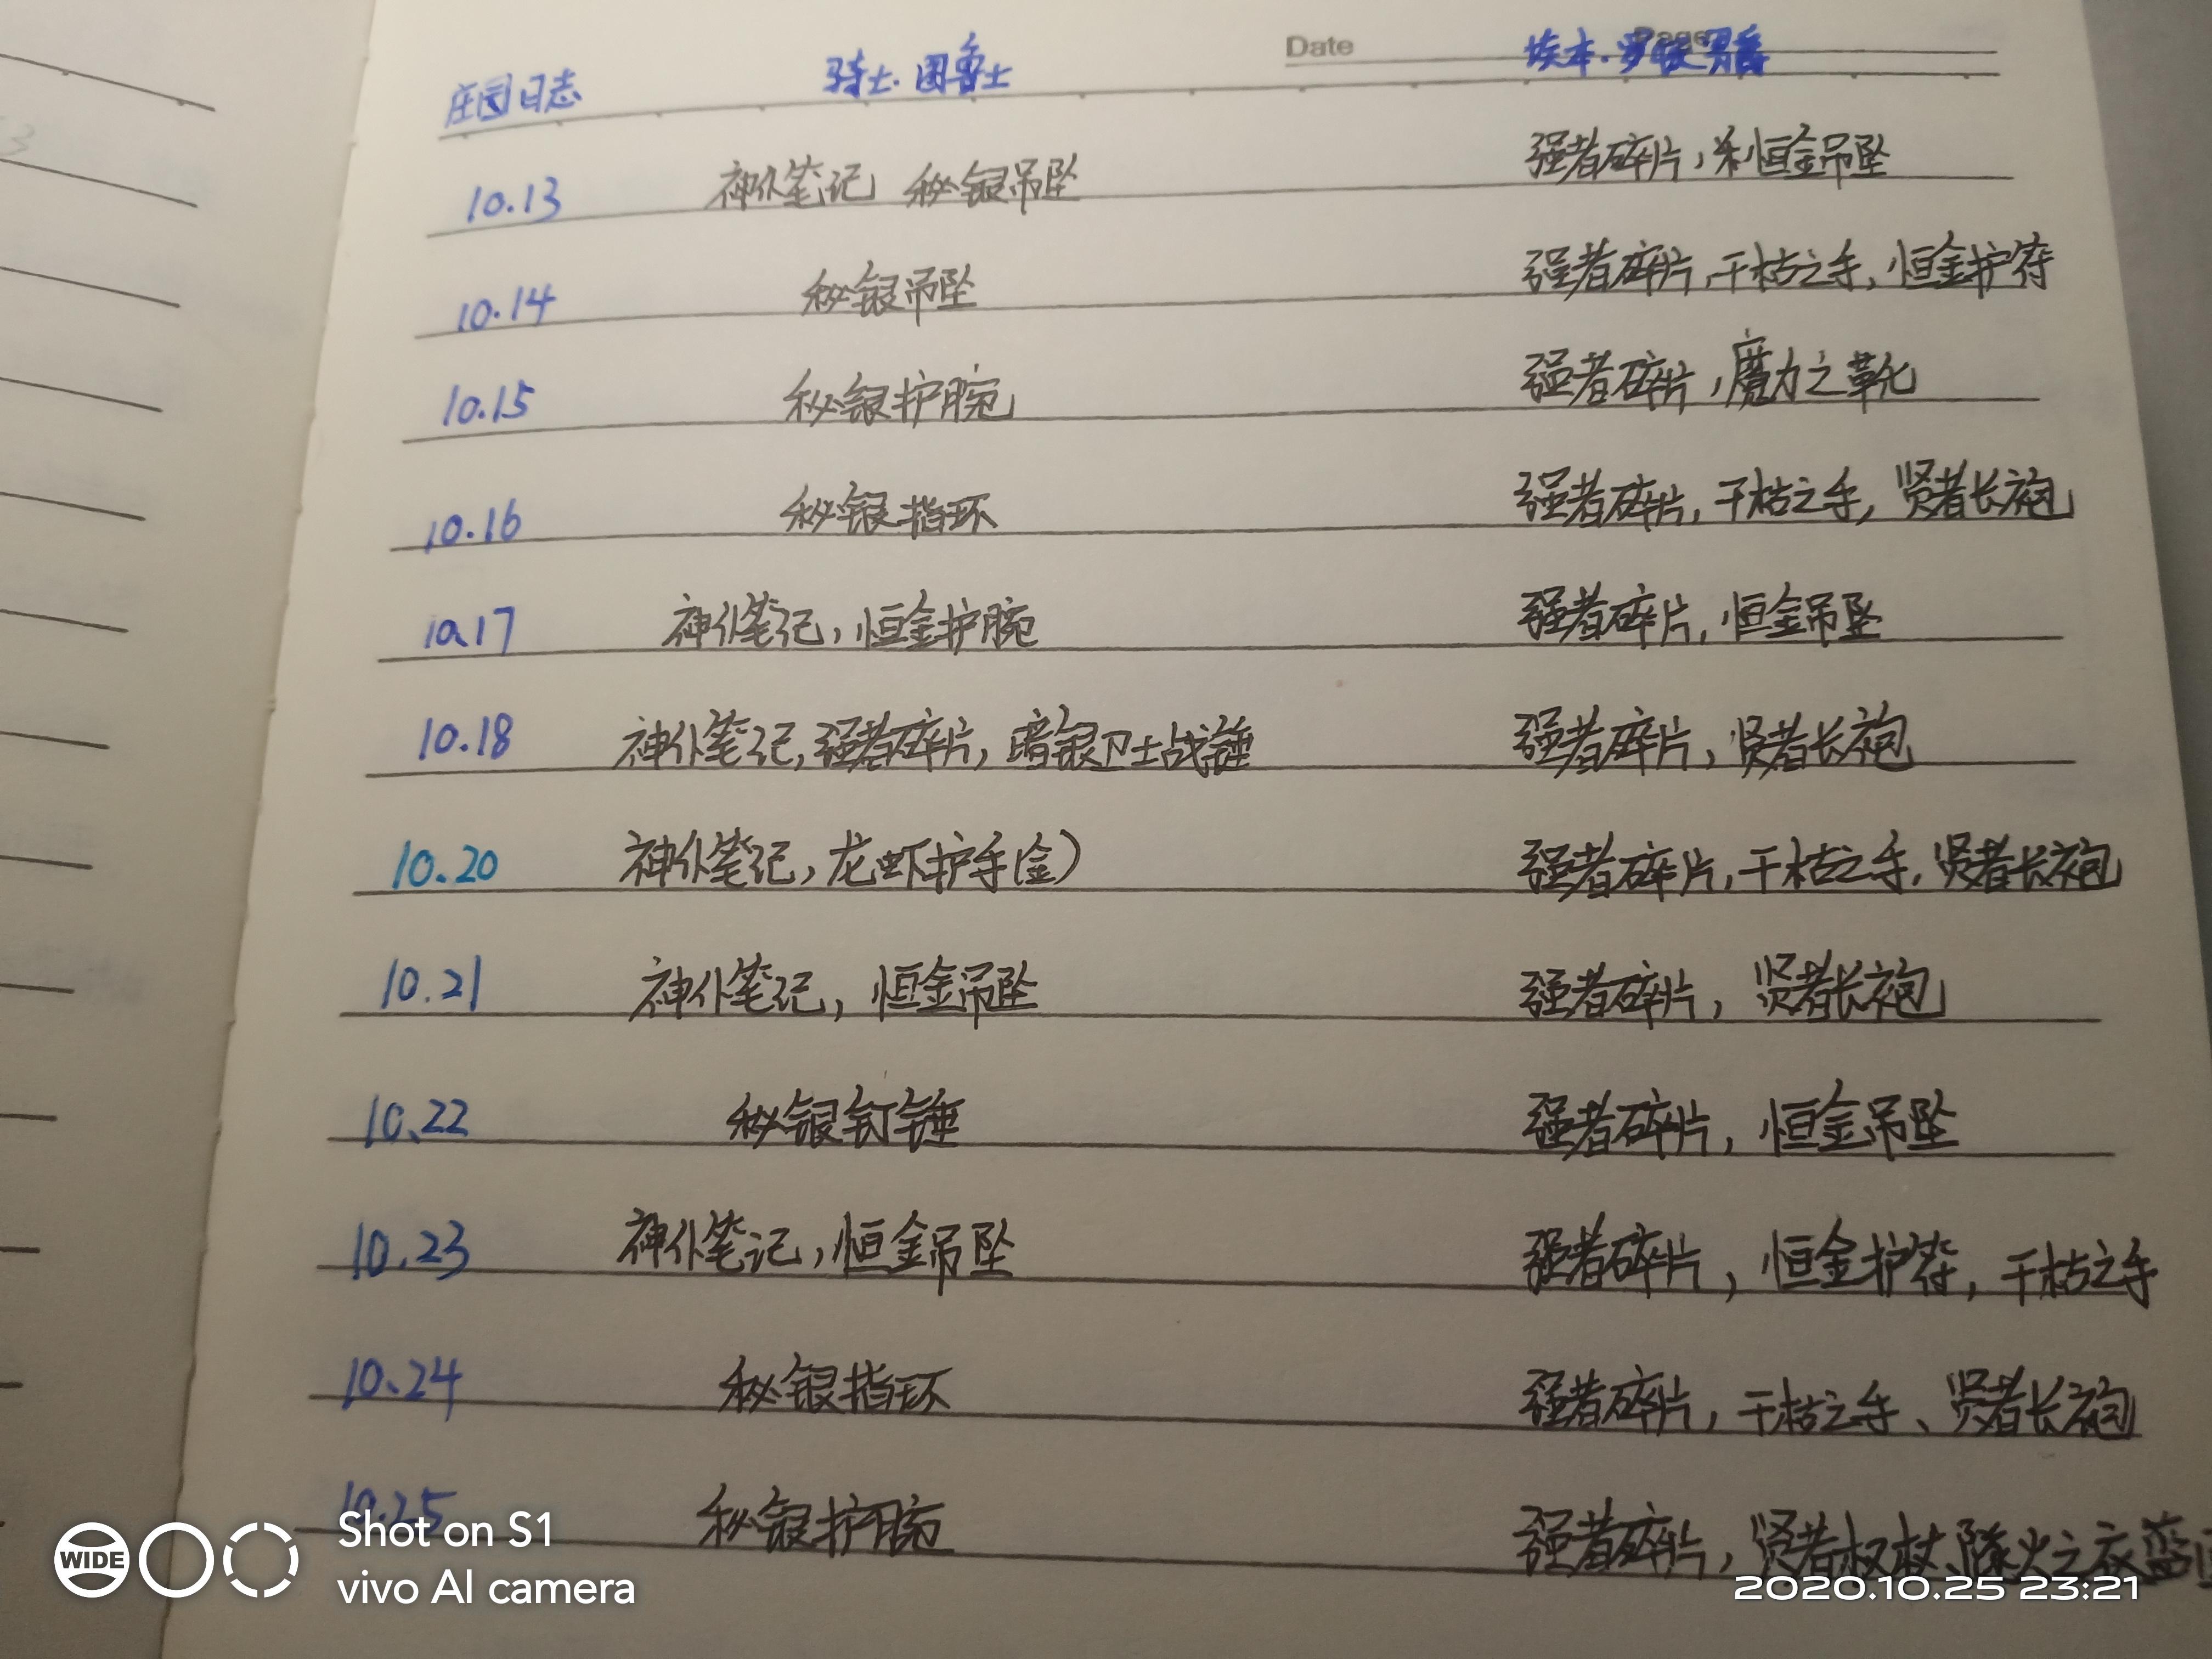 Date Page
庄园日志 骑士·图鲁士 埃本·罗 男爵
10.13 神仆笔记 秘银吊坠 强者碎片,恒金吊坠
10.14 秘银吊坠 强者碎片,干枯之手,恒金护符
10.15 秘银护腕 强者碎片,魔力之靴
10.16 秘银指环 强者碎片,干枯之手,贤者长袍
10.17 神仆笔记,恒金护腕 强者碎片,恒金吊坠
10.18 神仆笔记,强者碎片,暗银卫士战锤 强者碎片,贤者长袍
10.20 神仆笔记,龙虾护手(金) 强者碎片,干枯之手,贤者长袍
10.21 神仆笔记,恒金吊坠 强者碎片,贤者长袍
10.22 秘银钉锤 强者碎片,恒金吊坠
10.23 神仆笔记,恒金吊坠 强者碎片,恒金护符,干枯之手
10.24 秘银指环 强者碎片,干枯之手、贤者长袍
10.25 秘银护腕 强者碎片,贤者权杖、隊火之衣
WIDE
Shot on S1
vivo AI camera
2020.10.25 23:21